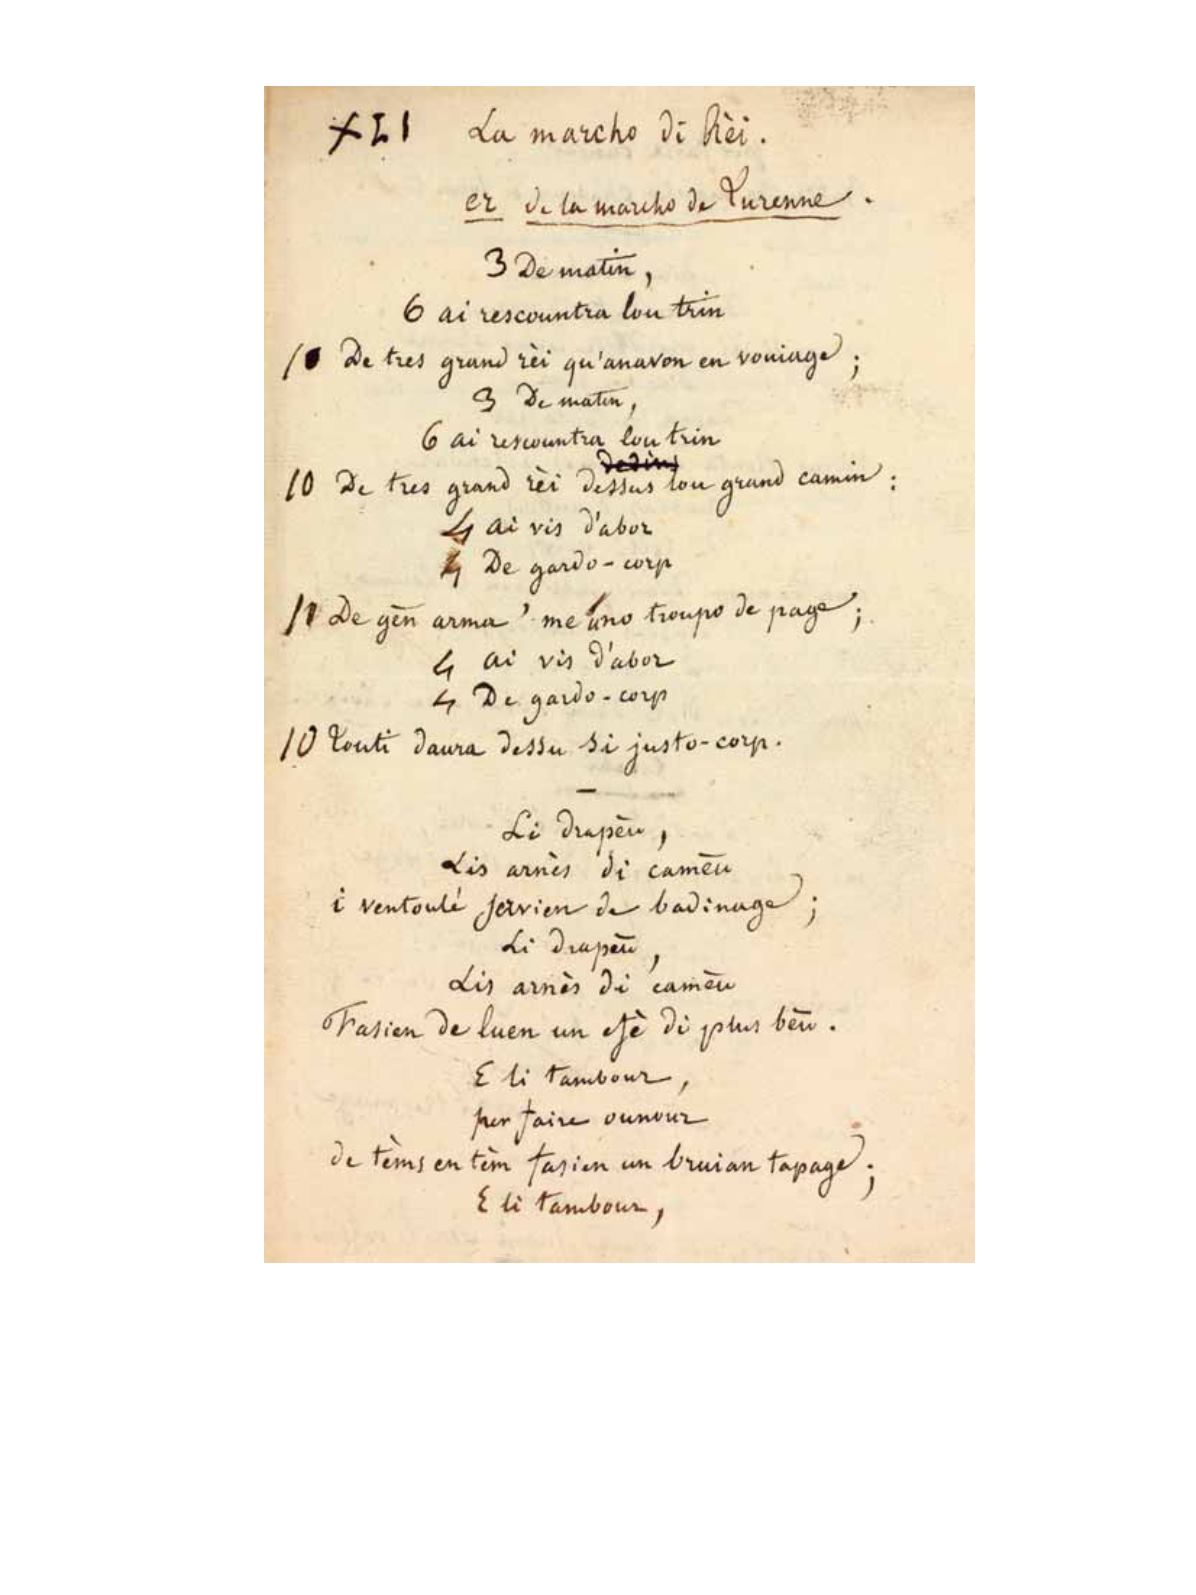 XLI La marcho di Rèi.
er de la marcho de Turenne.
3 De matin,
6 ai rescountra lou trin
10 De tres grand rèi qu'anavon en vouiage;
3 De matin,
6 ai rescountra lou trin
dedins
10 De tres grand rèi dessus lou grand camin:
4 ai vis d'abor
4 De gardo-corp
11 De gèn arma 'me uno troupo de page;
4 ai vis d'abor
4 De gardo-corp
10 Touti daura dessu si justo-corp.
Li drapèu,
Lis arnès di camèu
i ventoulé servien de badinage;
Li drapèu,
Lis arnès di camèu
Fasien de luen un efè di plus bèu.
E li tambour,
per faire ounour
de tèms en tèm fasien un bruian tapage;
E li tambour,